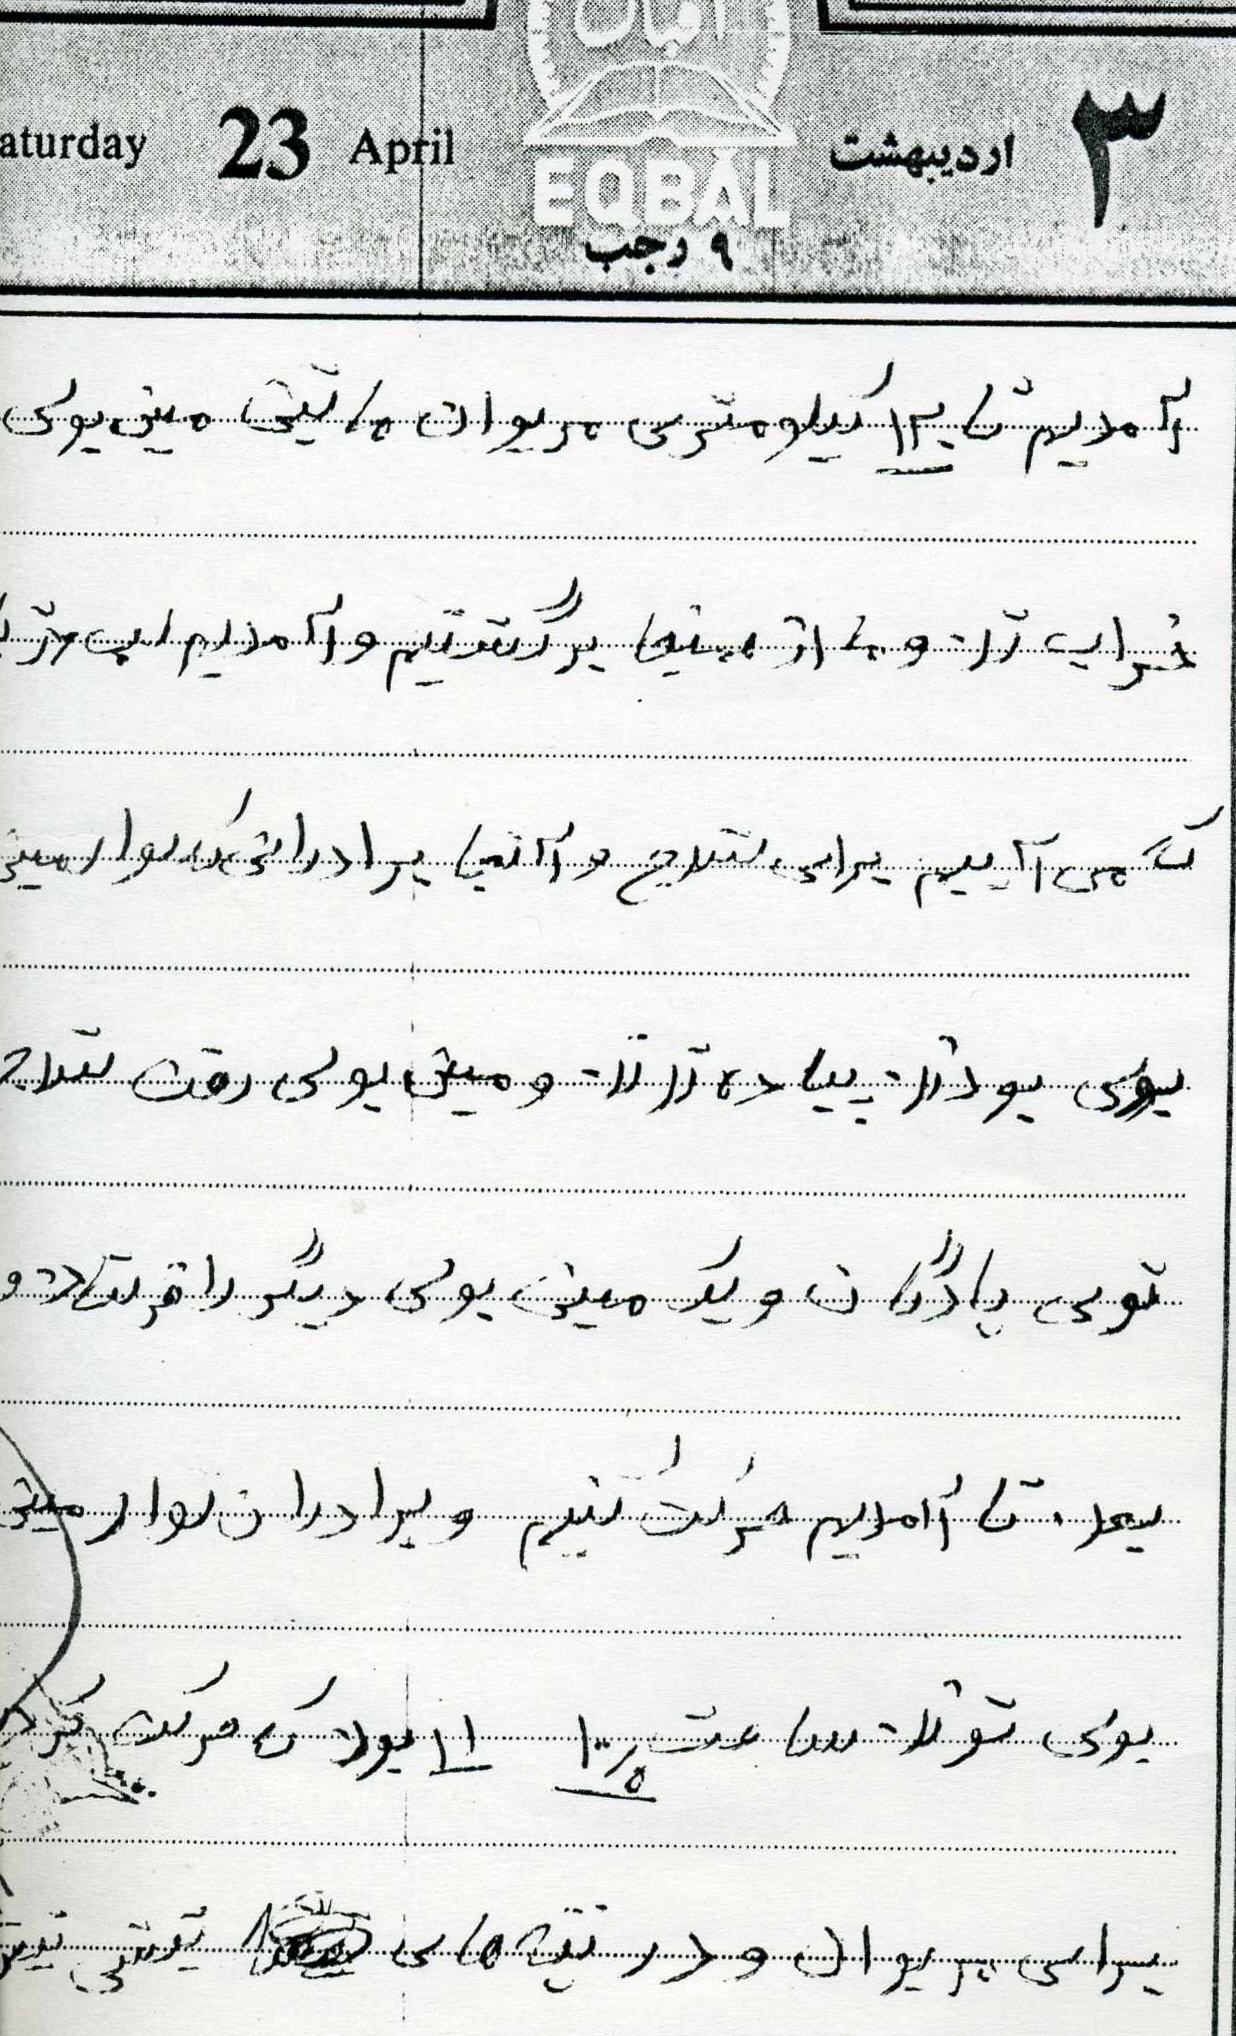 اقبال
EQBAL
aturday 23 April
۳ اردیبهشت
۹ رجب
آمدیم تا ۱۲ کیلومتری مریوان ماشین مینی بوس
خراب شد و ما از همینجا برگشتیم و آمدیم
که می آییم برای سنندج و آنجا برادرانی که سوار مینی
بوس بودند پیاده شدند و مینی بوس رفت سنندج
توی پادگان و یک مینی بوس دیگر را فرستادند و
بعد تا آمدیم حرکت کنیم و برادران سوار مینی
بوس شوند ساعت ۱۰ ۱۱ بود که حرکت کرد
برای مریوان و در تپه های